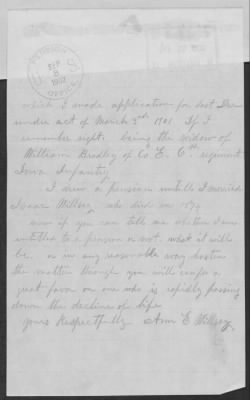 PENSION
OFFICE
SEP
1902
which I made application for last Dec
under act of March 3rd 1901 If I
remember right. being the widow of
William Bradley of Co E. 6th regiment
Iowa Infantry
I drew a pension untill I married
Isaac Willsey who died in
now if you can tell me whether I am
entitled to a pension or not. what it will
be. or in any reasonable way hasten
the matter through you will confer a
great favor on one who is rapidly passing
down the decline of life
yours Respectfully Ann E Willsey